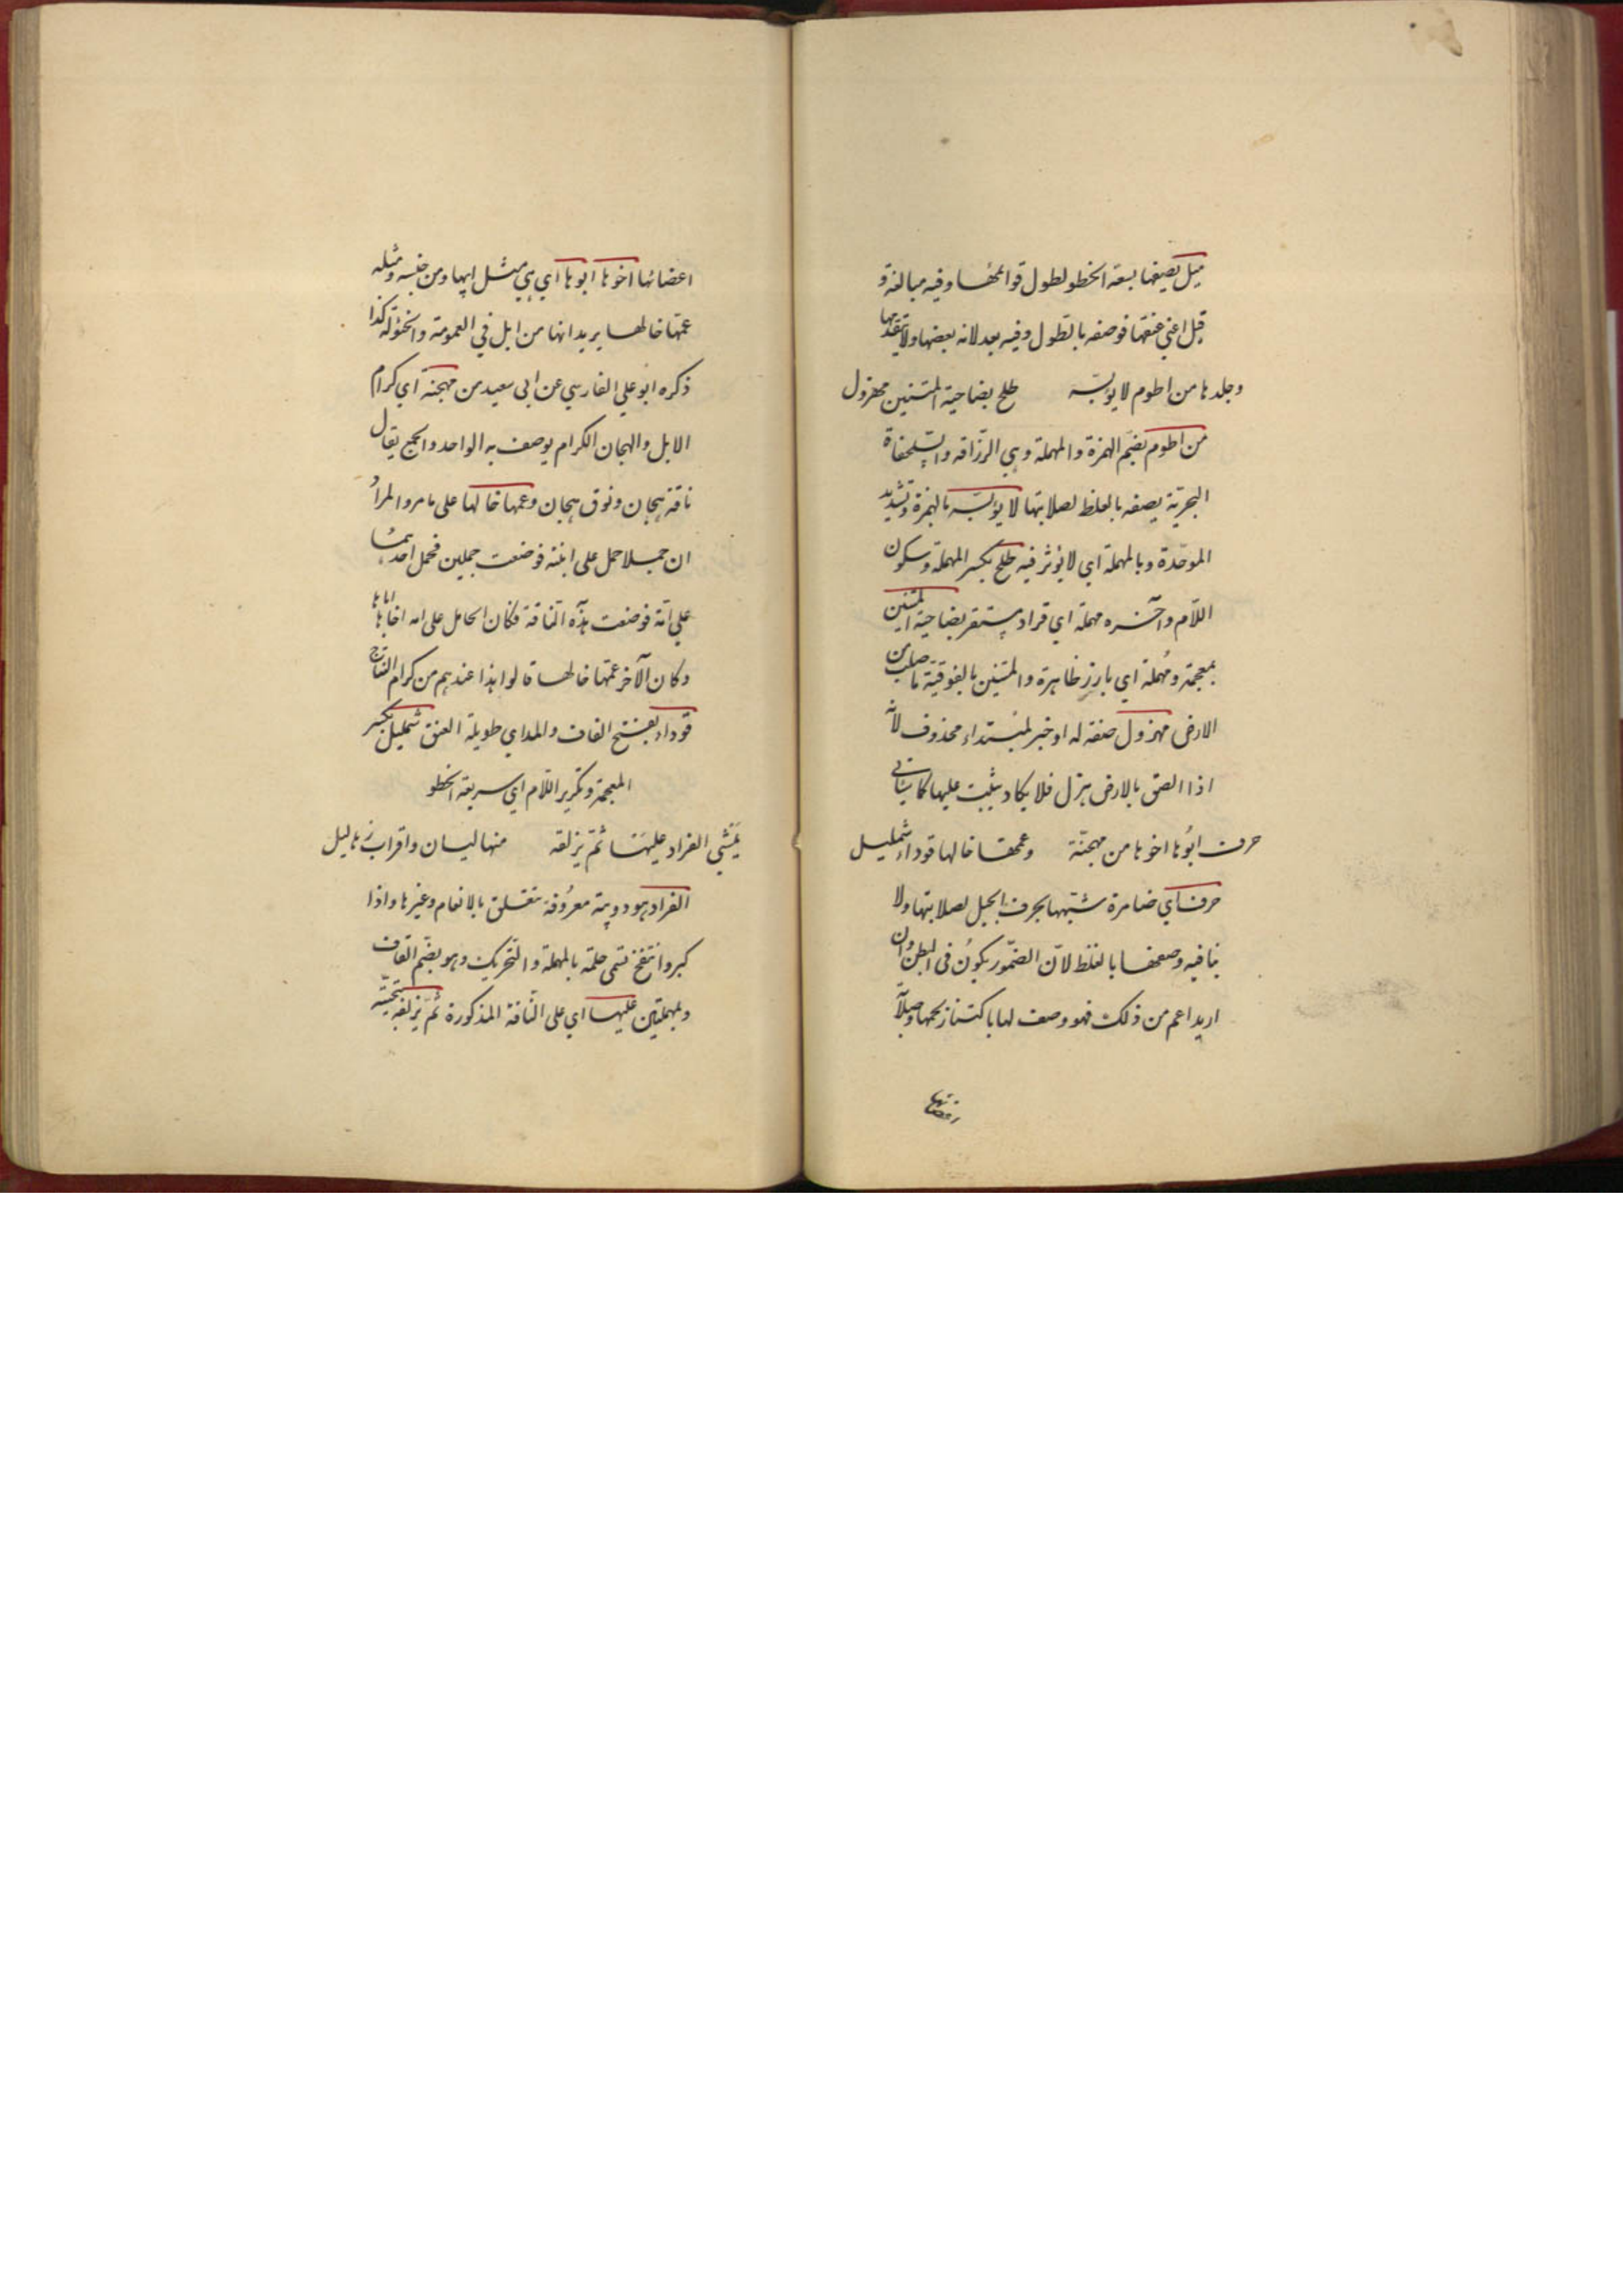 ميل يصفها بسعة الخطو لطول قوائمها وفيه مبالغة و
قيل اعني عنقها فوصفه بالطول وفيه بعد لانه بعضها ولا يتقدمها
وجلدها من اطوم لا يؤيسه طلح بضاحية المتنين مهزول
من اطوم بضم الهمزة والمهملة وهي الزرافة والسلحفاة
البحرية يصفه بالغلظ لصلابتها لا يؤيسه بالهمزة وتشديد
الموحدة وبالمهملة اي لا يؤثر فيه طلح بكسر المهملة وسكون
اللام وآخره مهملة اي قراد يستقر بضاحية المتنين
بمعجمة ومهملة اي بارز ظاهرة والمتنين بالفوقية ما صلب من
الارض مهزول صفة له او خبر لمبتداء محذوف لأنه
اذا التصق بالارض هزل فلا يكاد يثبت عليها كما سياتي
حرف ابوها اخوها من مهجنة وعمها خالها قوداء شمليل
حرف اي ضامرة شبهها بحرف الجبل لصلابتها ولا
ينافيه وصفها بالغلظ لان الضمور يكون في البطن وان
اريد اعم من ذلك فهو وصف لها باكتناز لحمها وصلابة
اعضائها اخوها ابوها اي هي مثل ابيها ومن جنسه ومثله
عمها خالها يريد انها من ابل في العمومة والخؤلة كذا
ذكره ابو علي الفارسي عن ابي سعيد من مهجنة اي كرام
الابل والهجان الكرام يوصف به الواحد والجمع يقال
ناقة هجان ونوق هجان وعمها خالها على ما مر والمراد
ان جملا حمل على ابنته فوضعت جملين فحمل احدهما
على امه فوضعت هذه الناقة فكان الحامل على امه اخاها اباها
وكان الآخر عمها خالها قالوا هذا عندهم من كرام النتاج
قوداء بفتح القاف والمد اي طويلة العنق شمليل بكسر
المعجمة وتكرير اللام اي سريعة الخطو
يمشي القراد عليها ثم يزلقه منها لبان واقراب زهاليل
القراد هو دويبة معروفة تتعلق بالانعام وغيرها واذا
كبر وانتفخ تسمى حلمة بالمهملة والتحريك وهو بضم القاف
وبمهملتين عليها اي على الناقة المذكورة ثم يزلقه بتحتية